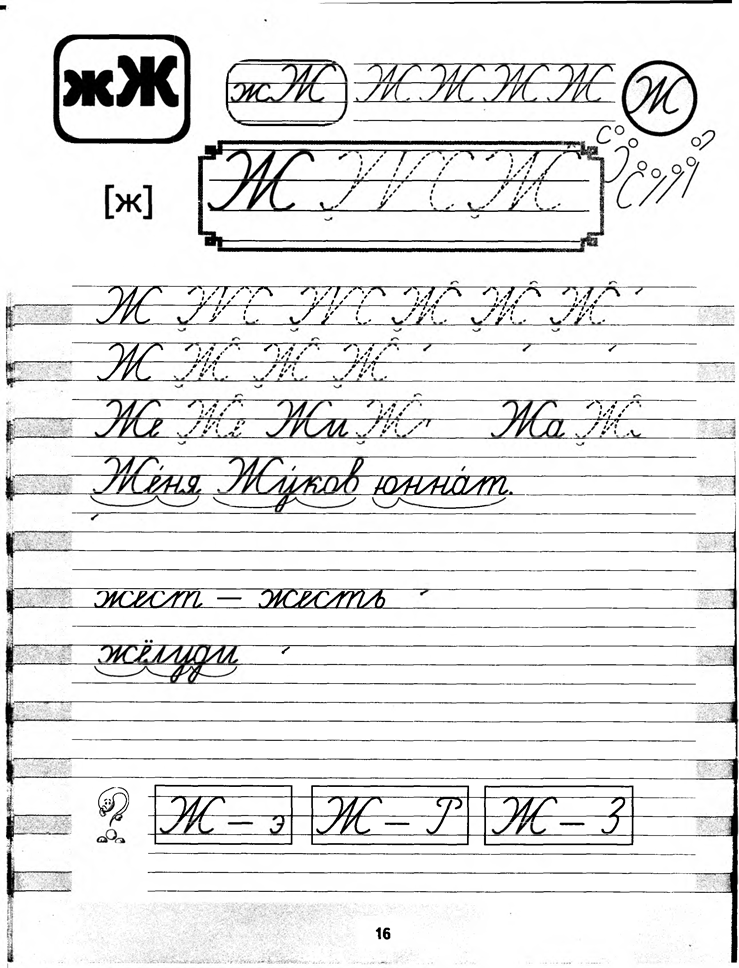 жЖ жЖ Ж Ж Ж Ж Ж
[ж] Ж Ж
Ж Ж Ж Ж
Ж Ж Ж Ж
Же Же Жи Жи Жа Ж
Же́ня Жу́ков юнна́т.
жест — жесть
жёлуди
Ж – э Ж – Р Ж – З
16